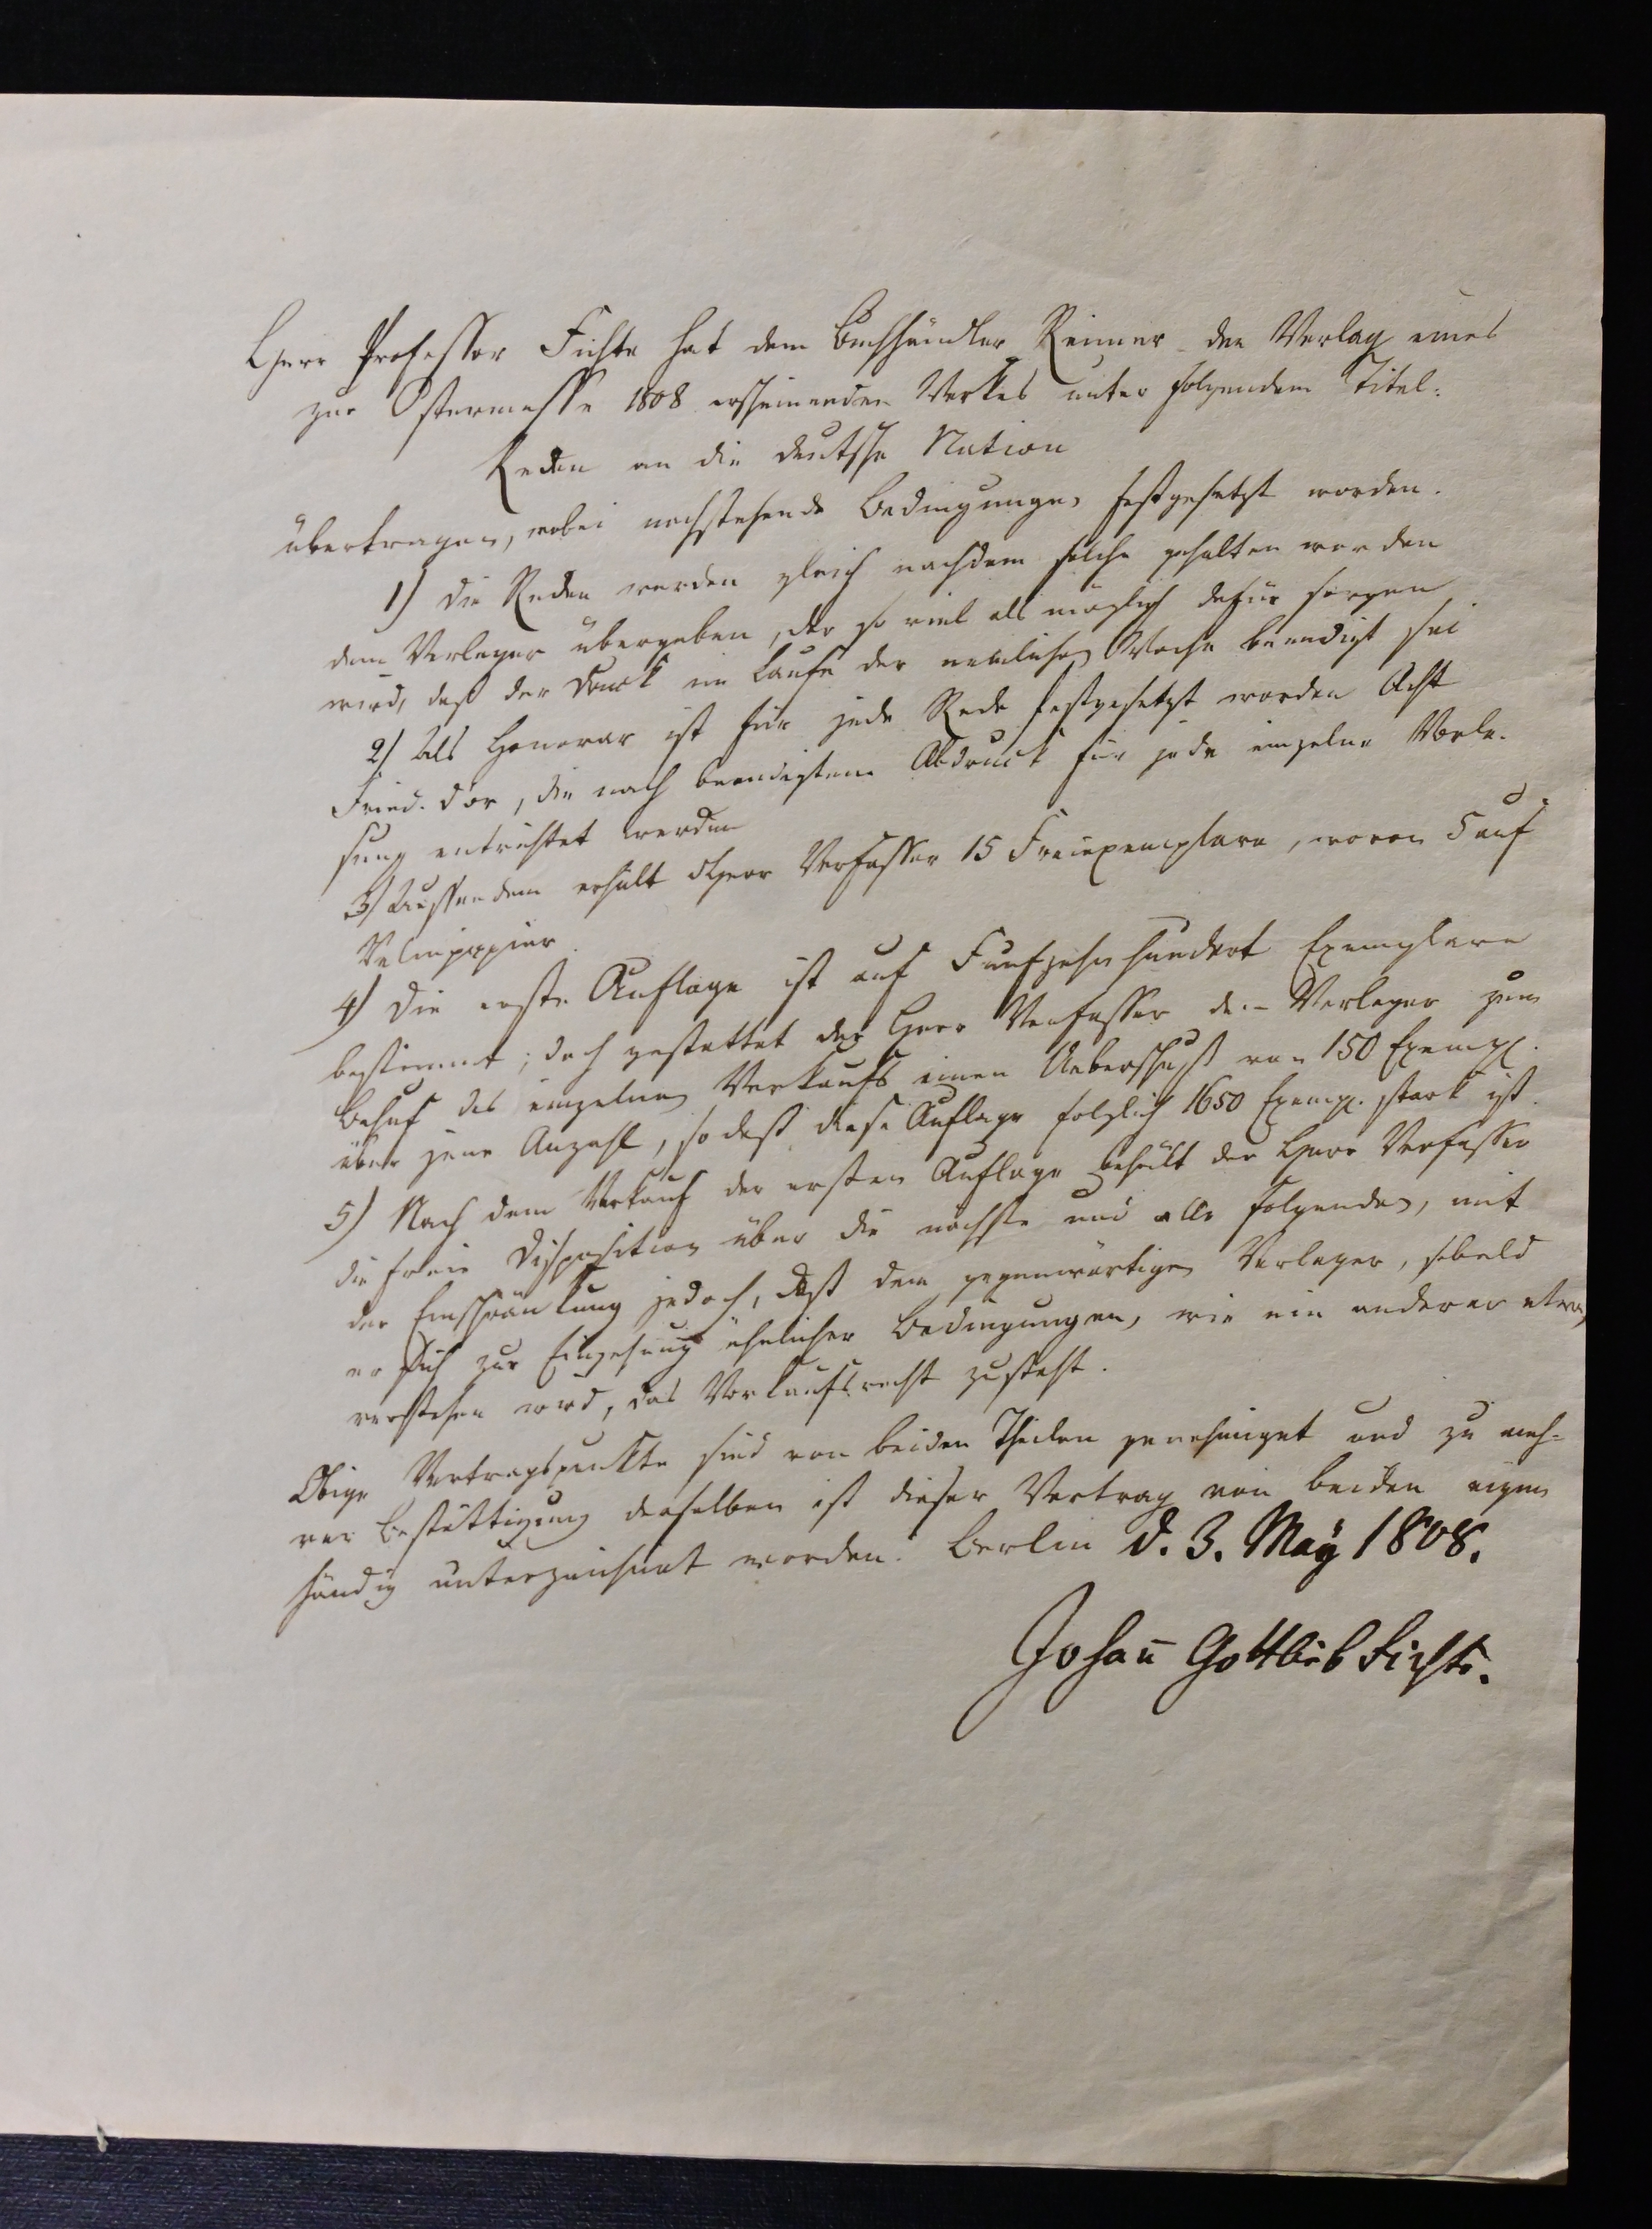 Herr Professor Fichte hat dem Buchhändler Reimer den Verlag eines
zur Ostermesse 1808 erscheinenden Werkes unter folgendem Titel:
Reden an die deutsche Nation
übertragen, wobei nachstehende Bedingungen festgesetzt worden.
1) Die Reden werden gleich nachdem solche gehalten worden
dem Verleger übergeben, der so viel als möglich dafür sorgen
wird, daß der Druck im Laufe der nemlichen Woche beendigt sei
2) Als Honorar ist für jede Rede festgesetzt worden Acht
Fried. d'or, die nach beendigtem Abdruck für jede einzelne Vorle-
sung entrichtet werden
3) Ausserdem erhält der Herr Verfasser 15 Freiexemplare, wovon 5 auf
Velinpapier.
4) Die erste Auflage ist auf Funfzehn hundert Exemplare
bestimmt; doch gestattet der Herr Verfasser dem Verleger zum
Behuf des einzelnen Verkaufs einen Ueberschuß von 150 Exempl.
über jene Anzahl, so daß diese Auflage folglich 1650 Exempl. stark ist.
5) Nach dem Verkauf der ersten Auflage behält der Herr Verfasser
die freie Disposition über die nächste und alle folgenden, mit
der Einschränkung jedoch, daß dem gegenwärtigen Verleger, sobald
er sich zur Eingehung ähnlicher Bedingungen, wie ein anderer etwa,
verstehen wird, das Vorkaufsrecht zusteht.
Obige Vertragspunkte sind von beiden Theilen genehmiget und zu meh-
rer Bestättigung derselben ist dieser Vertrag von beiden eigen
händig unterzeichnet worden. Berlin d. 3. May 1808.
Johañ Gottlieb Fichte.